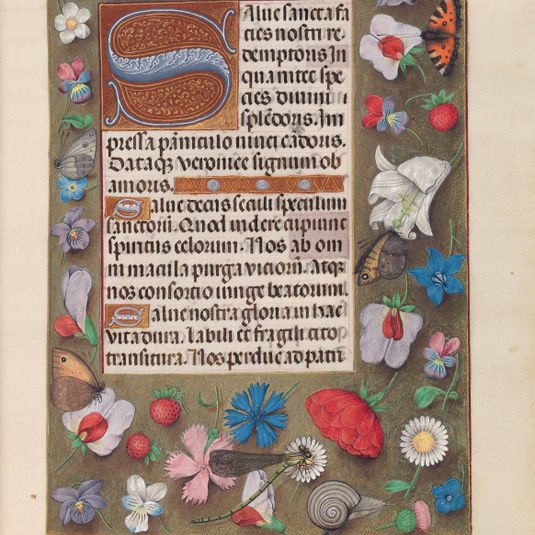 Salue sancta fa
cies nostri re
demptoris In
qua nitet spe
cies diuini
splēdoris. Im
pressa pāniculo niuei cādoris.
Dataq; veronice signum ob
amoris.
Salue decus seculi speculum
sanctorū. Quod videre cupiunt
spiritus celorum. Nos ab om
ni macula purga viciorū. Atq;
nos consortio iunge beatorum
Salue nostra gloria in hac
vita dura. labili et fragili cito
transitura. Nos perduc ad patri